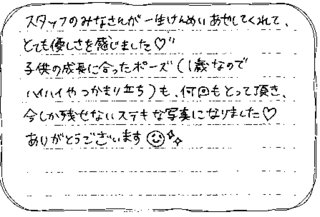 スタッフのみなさんが一生けんめいあやしてくれて、
とても優しさを感じました♡
子供の成長に合ったポーズ(1歳なので
ハイハイやつかまり立ち)も、何回もとって頂き、
今しか残せないステキな写真になりました♡
ありがとうございます☺